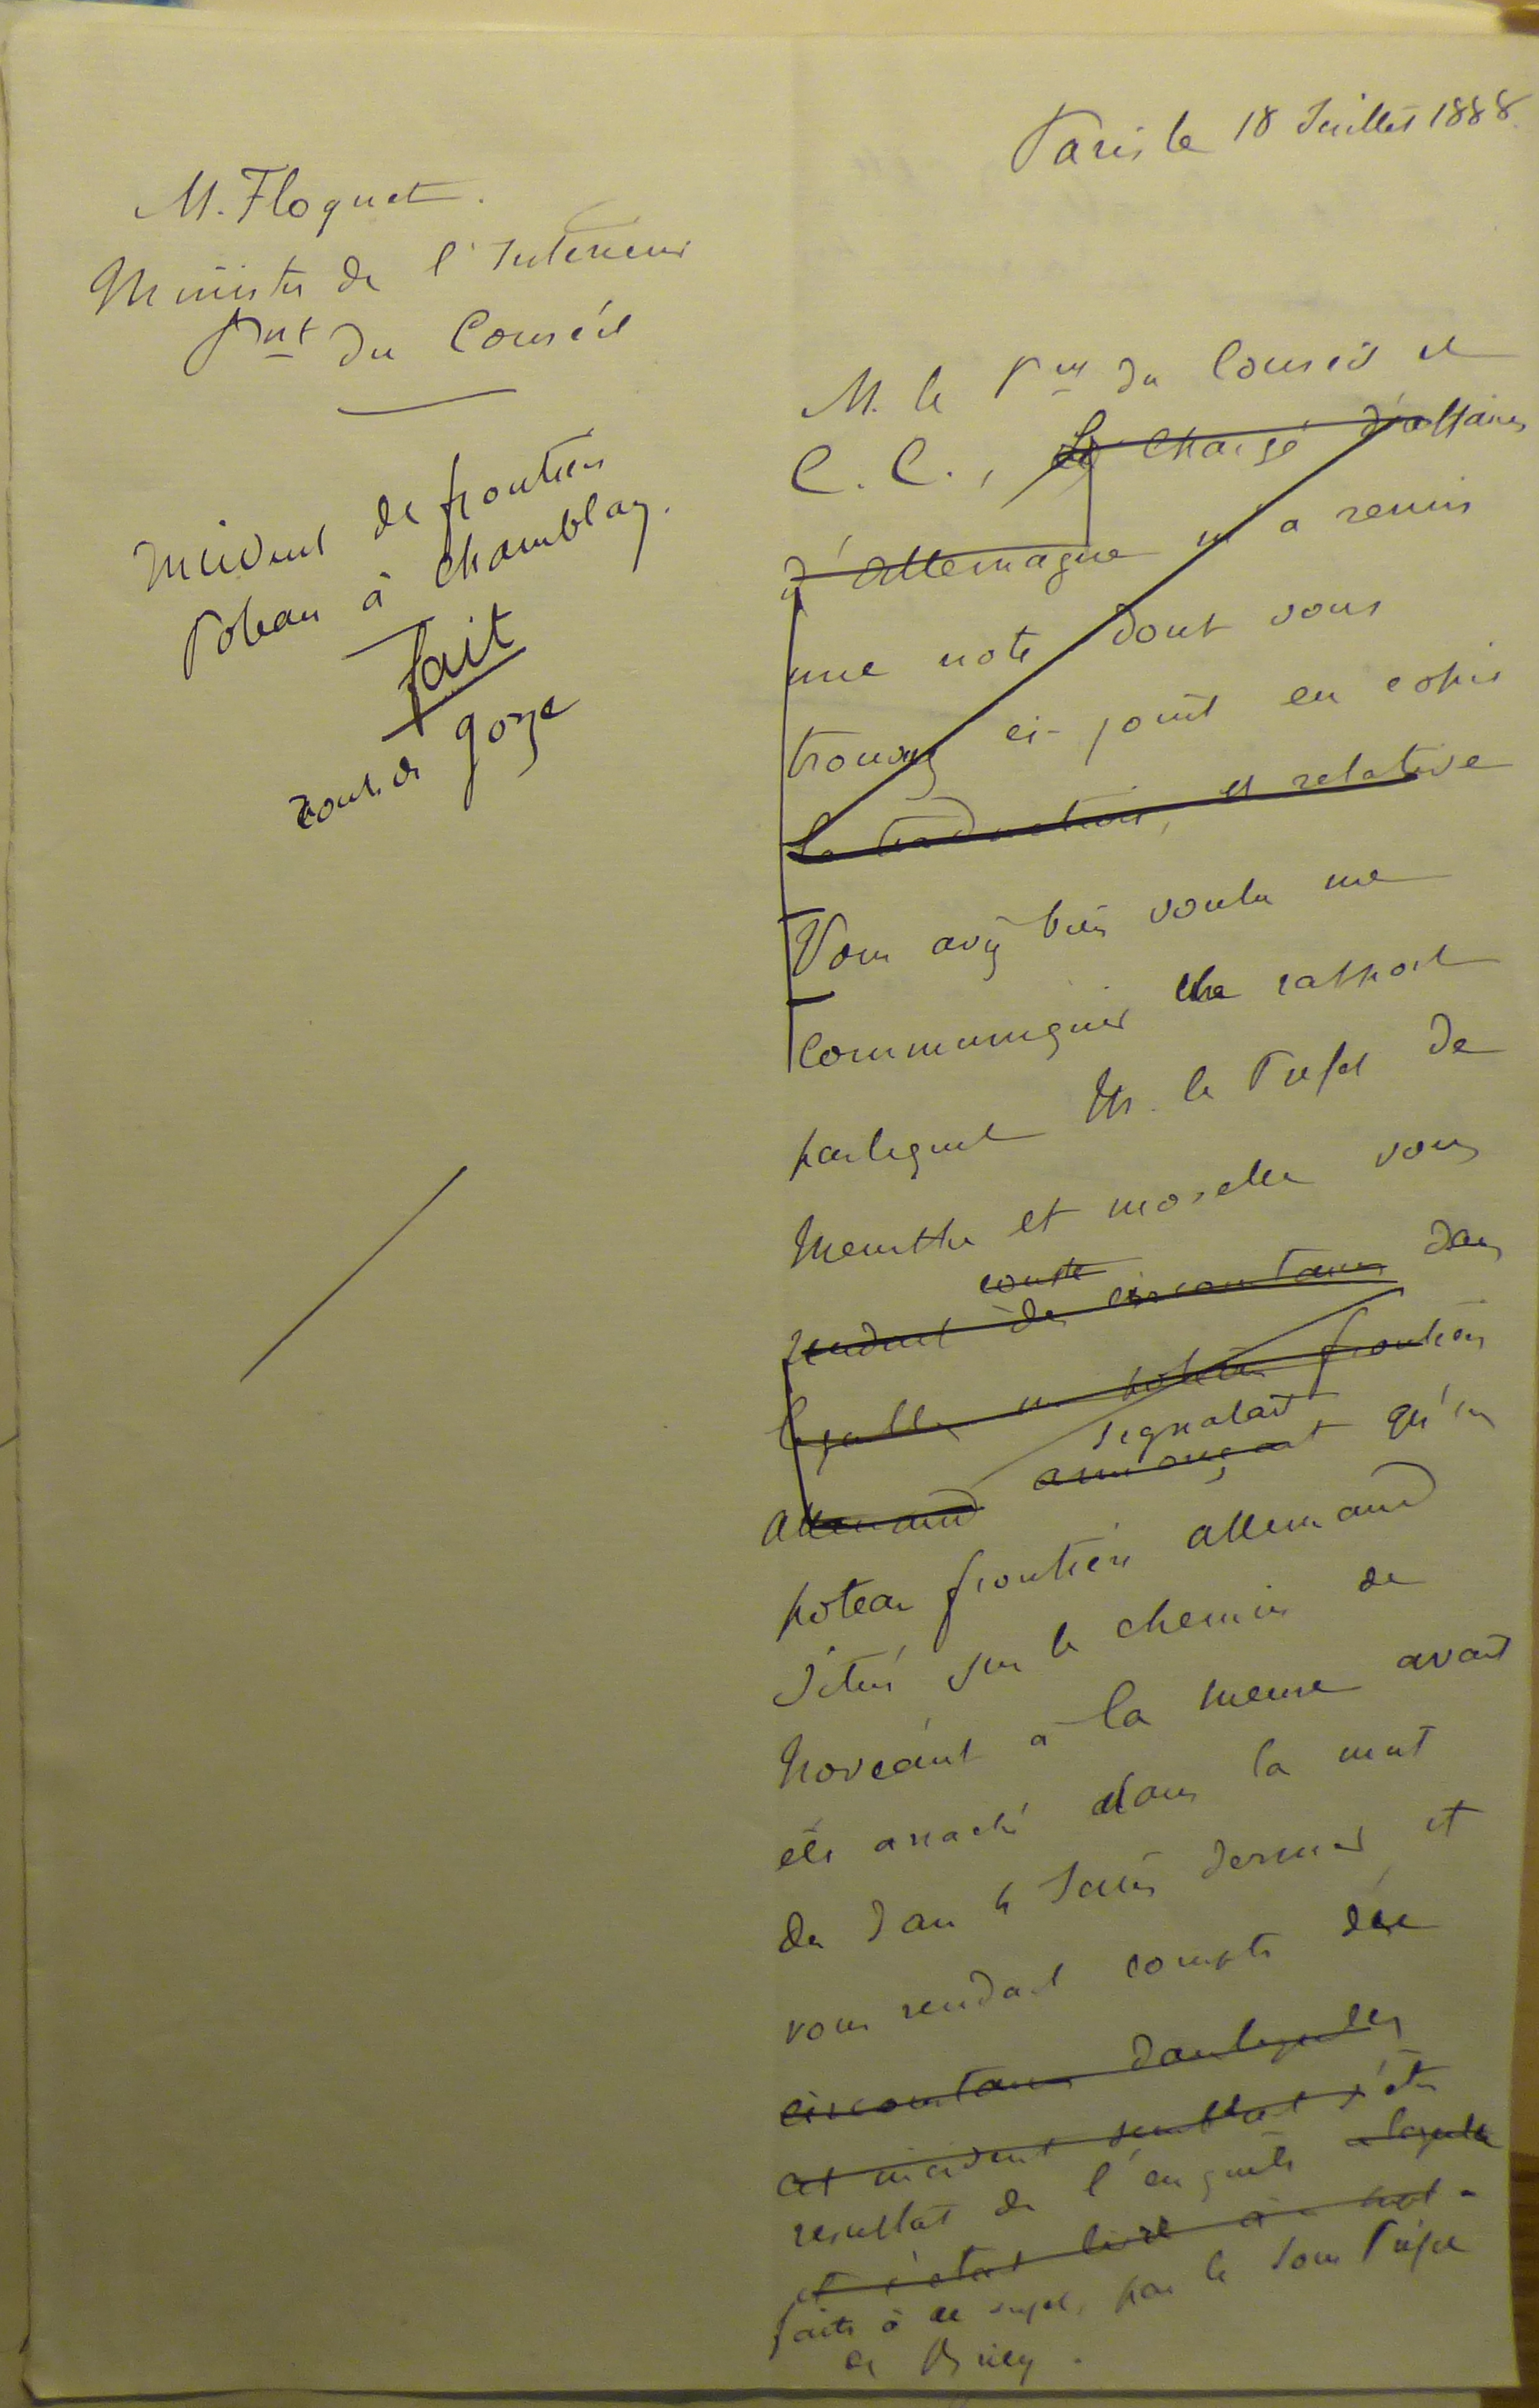 Paris le 18 Juillet 1888.
M. Floquet.
Ministre de l'Intérieur
Pnt du Conseil
Incident de frontière
Poteau à Chamblay.
fait
route de Gorze
M. le Pnt du Conseil et
C. C., Le Chargé d'affaires
d'Allemagne m'a remis
une note dont vous
trouverez ci-joint en copie
la traduction, et relative
Vous avez bien voulu me
communiquer un rapport
par lequel M. le Préfet de
Meurthe et Moselle vous
rendait compte des circonstances dans
lesquelles un poteau frontière
allemand annonçait signalait qu'un
poteau frontière allemand
situé sur le chemin de
Novéant à la Meuse avait
été arraché dans la nuit
du 3 au 4 Juin dernier et
vous rendait compte du
circonstances dans lesquelles
cet incident semblait s'être
résultat de l'enquête à laquelle
et s'était livré
faite à ce sujet, par le Sous Préfet
de Briey.